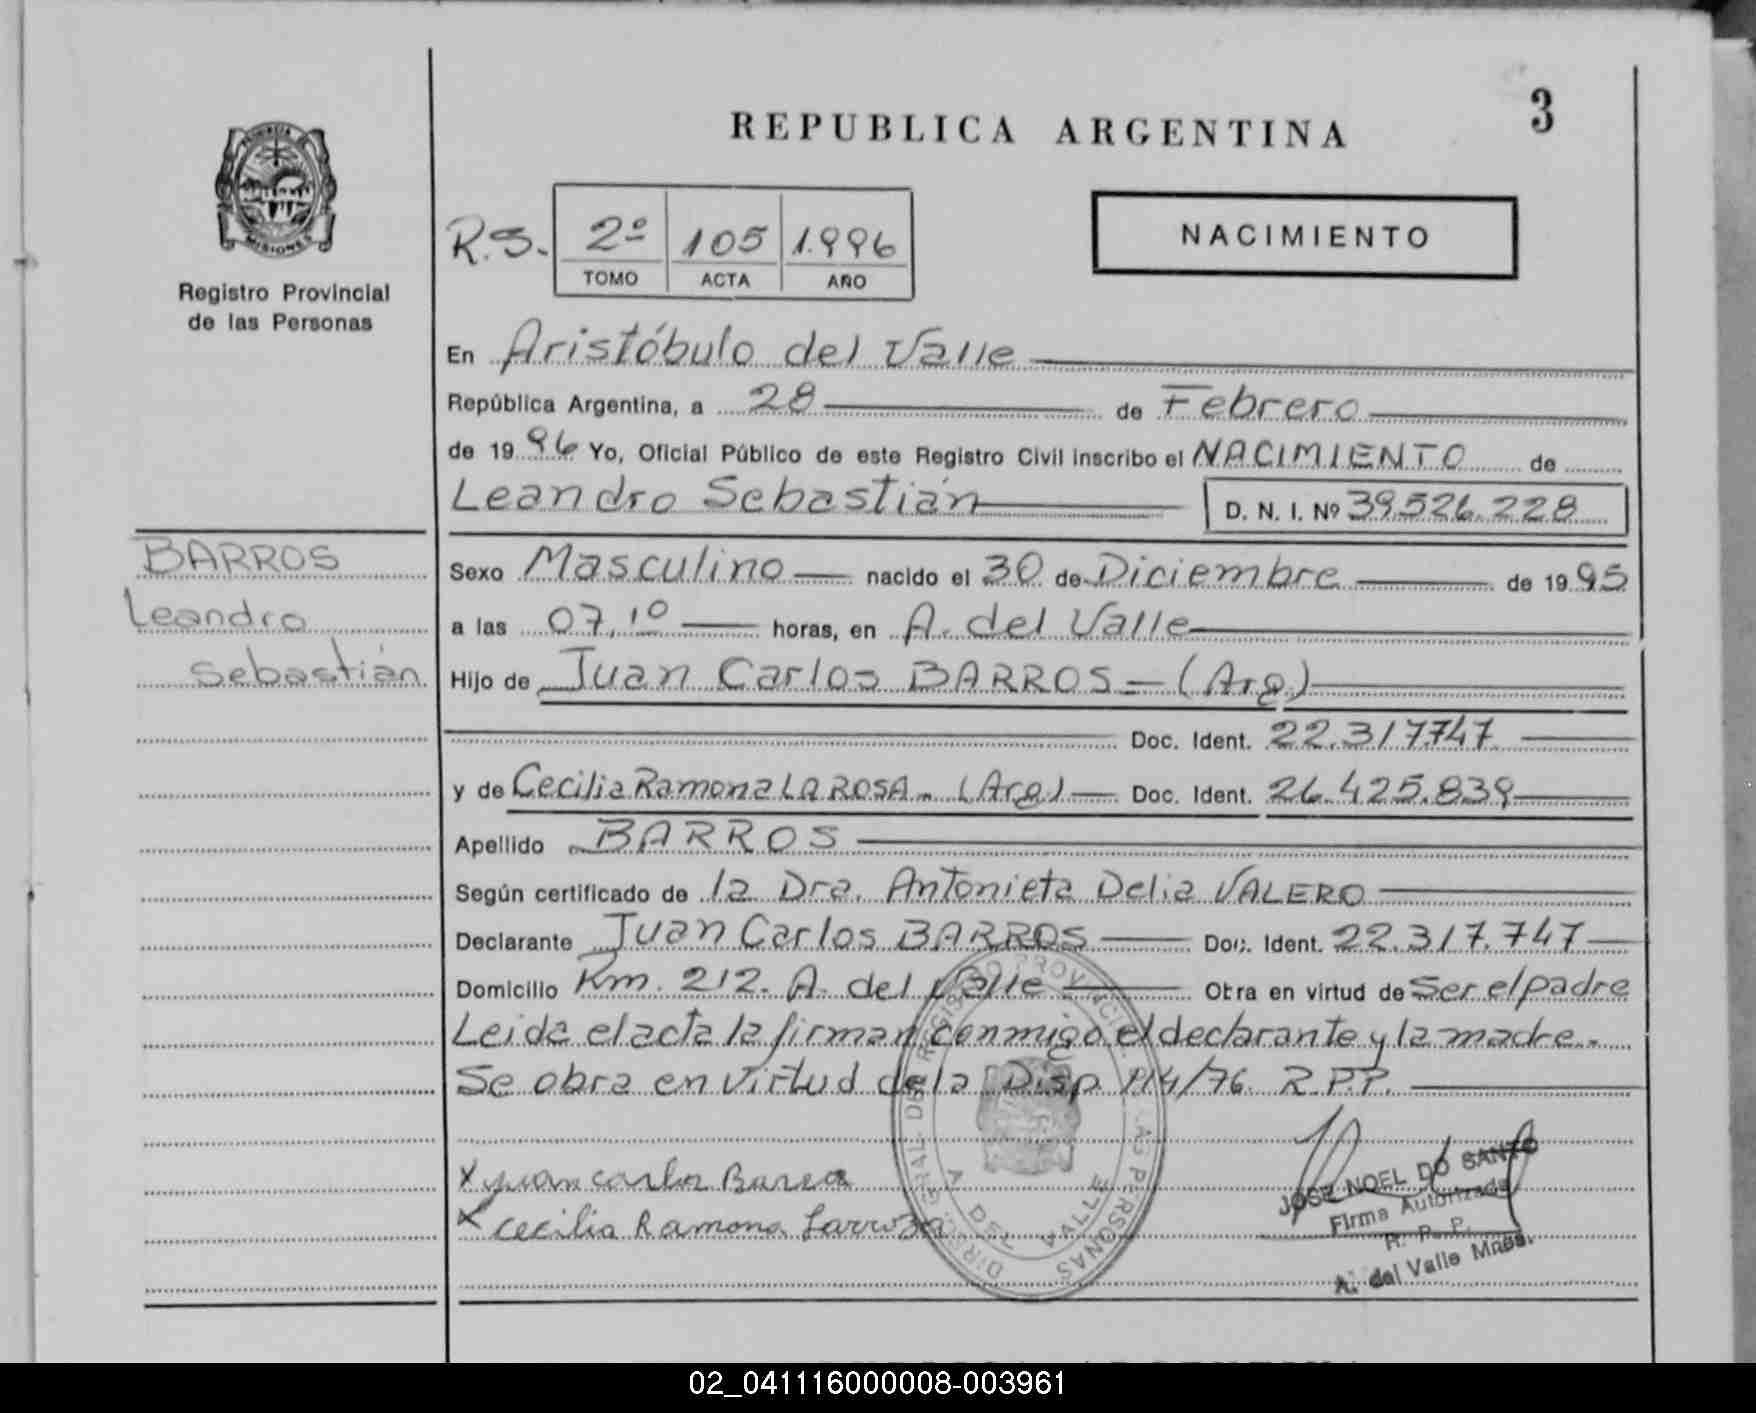 3
REPUBLICA ARGENTINA
MISIONES
Registro Provincial
de las Personas
R.S. 2º 105 1.996
TOMO ACTA AÑO
NACIMIENTO
En Aristóbulo del Valle
República Argentina, a 28 de Febrero
de 19 96 Yo, Oficial Público de este Registro Civil inscribo el NACIMIENTO de
Leandro Sebastián D. N. I. Nº 39.526.228
BARROS
Leandro
Sebastián
Sexo Masculino nacido el 30 de Diciembre de 19 95
a las 07,10 horas, en A. del Valle
Hijo de Juan Carlos BARROS - (Arg)
Doc. Ident. 22.317.747
y de Cecilia Ramona LAROSA - (Arg) Doc. Ident. 26.425.839
Apellido BARROS
Según certificado de la Dra. Antonieta Delia VALERO
Declarante Juan Carlos BARROS Doc. Ident. 22.317.747
Domicilio Km. 212. A. del Valle Obra en virtud de Ser el padre
Leida el acta la firman conmigo el declarante y la madre.-
Se obra en virtud de la Disp. 114/76. R.P.P.
X Juan carlos Barros
X cecilia Ramona Larroza
DIRECC. GRAL. DEL REGISTRO PROVINCIAL DE LAS PERSONAS
A. DEL VALLE
JOSE NOEL DO SANTO
Firma Autorizada
R. P. P.
A. del Valle Mnes.
02_041116000008-003961